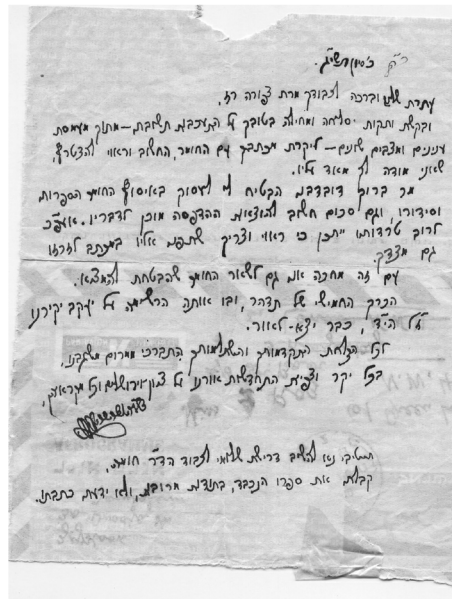 ב"ה, כ' סיון תשי"ג.
עתרת שלו' וברכה לכבודך מרת צפורה רז,
ובקשת ותקות סליחה ומחילה בטובך על התעכבות תשובתי, – מתוך מעמסת
ענינים ומצבים שונים – ליקרת מכתבך עם החומר, החשוב וראוי להצטרף,
שאני מודה לך מאוד עליו.
מר ברוך דובדבני הבטיח לי לעסוק באיסוף החומר הספרותי
וסידורו, וגם סכום חשוב להוצאות ההדפסה מוכן לדבריו. אעפ"כ
לרוב טרדותיו ייתכן כי ראוי וצריך שתפנו אליו במכתב לזרזו
גם מצדך.
עם זה מחכה אני גם לשאר החומר שהבטחת להמציא.
הכרך החמישי של תדהר, ובו אותה הרשימה על יעקב יקירנו
ז"ל הי"ד, כבר יצא לאור.
לכל הצלחת התקדמותך והשתלמותך התברכי ממרום משגבנו,
בכל יקר וצפיית התחדשות אורנו על ציון וירושלים וכל מקראיה,
תטיבי נא להשיב דרישת שלומי לכבוד הד"ר
קבלתי את ספרו הנכבד, בתודות מרובות, ולא ידעתי כתבתו.